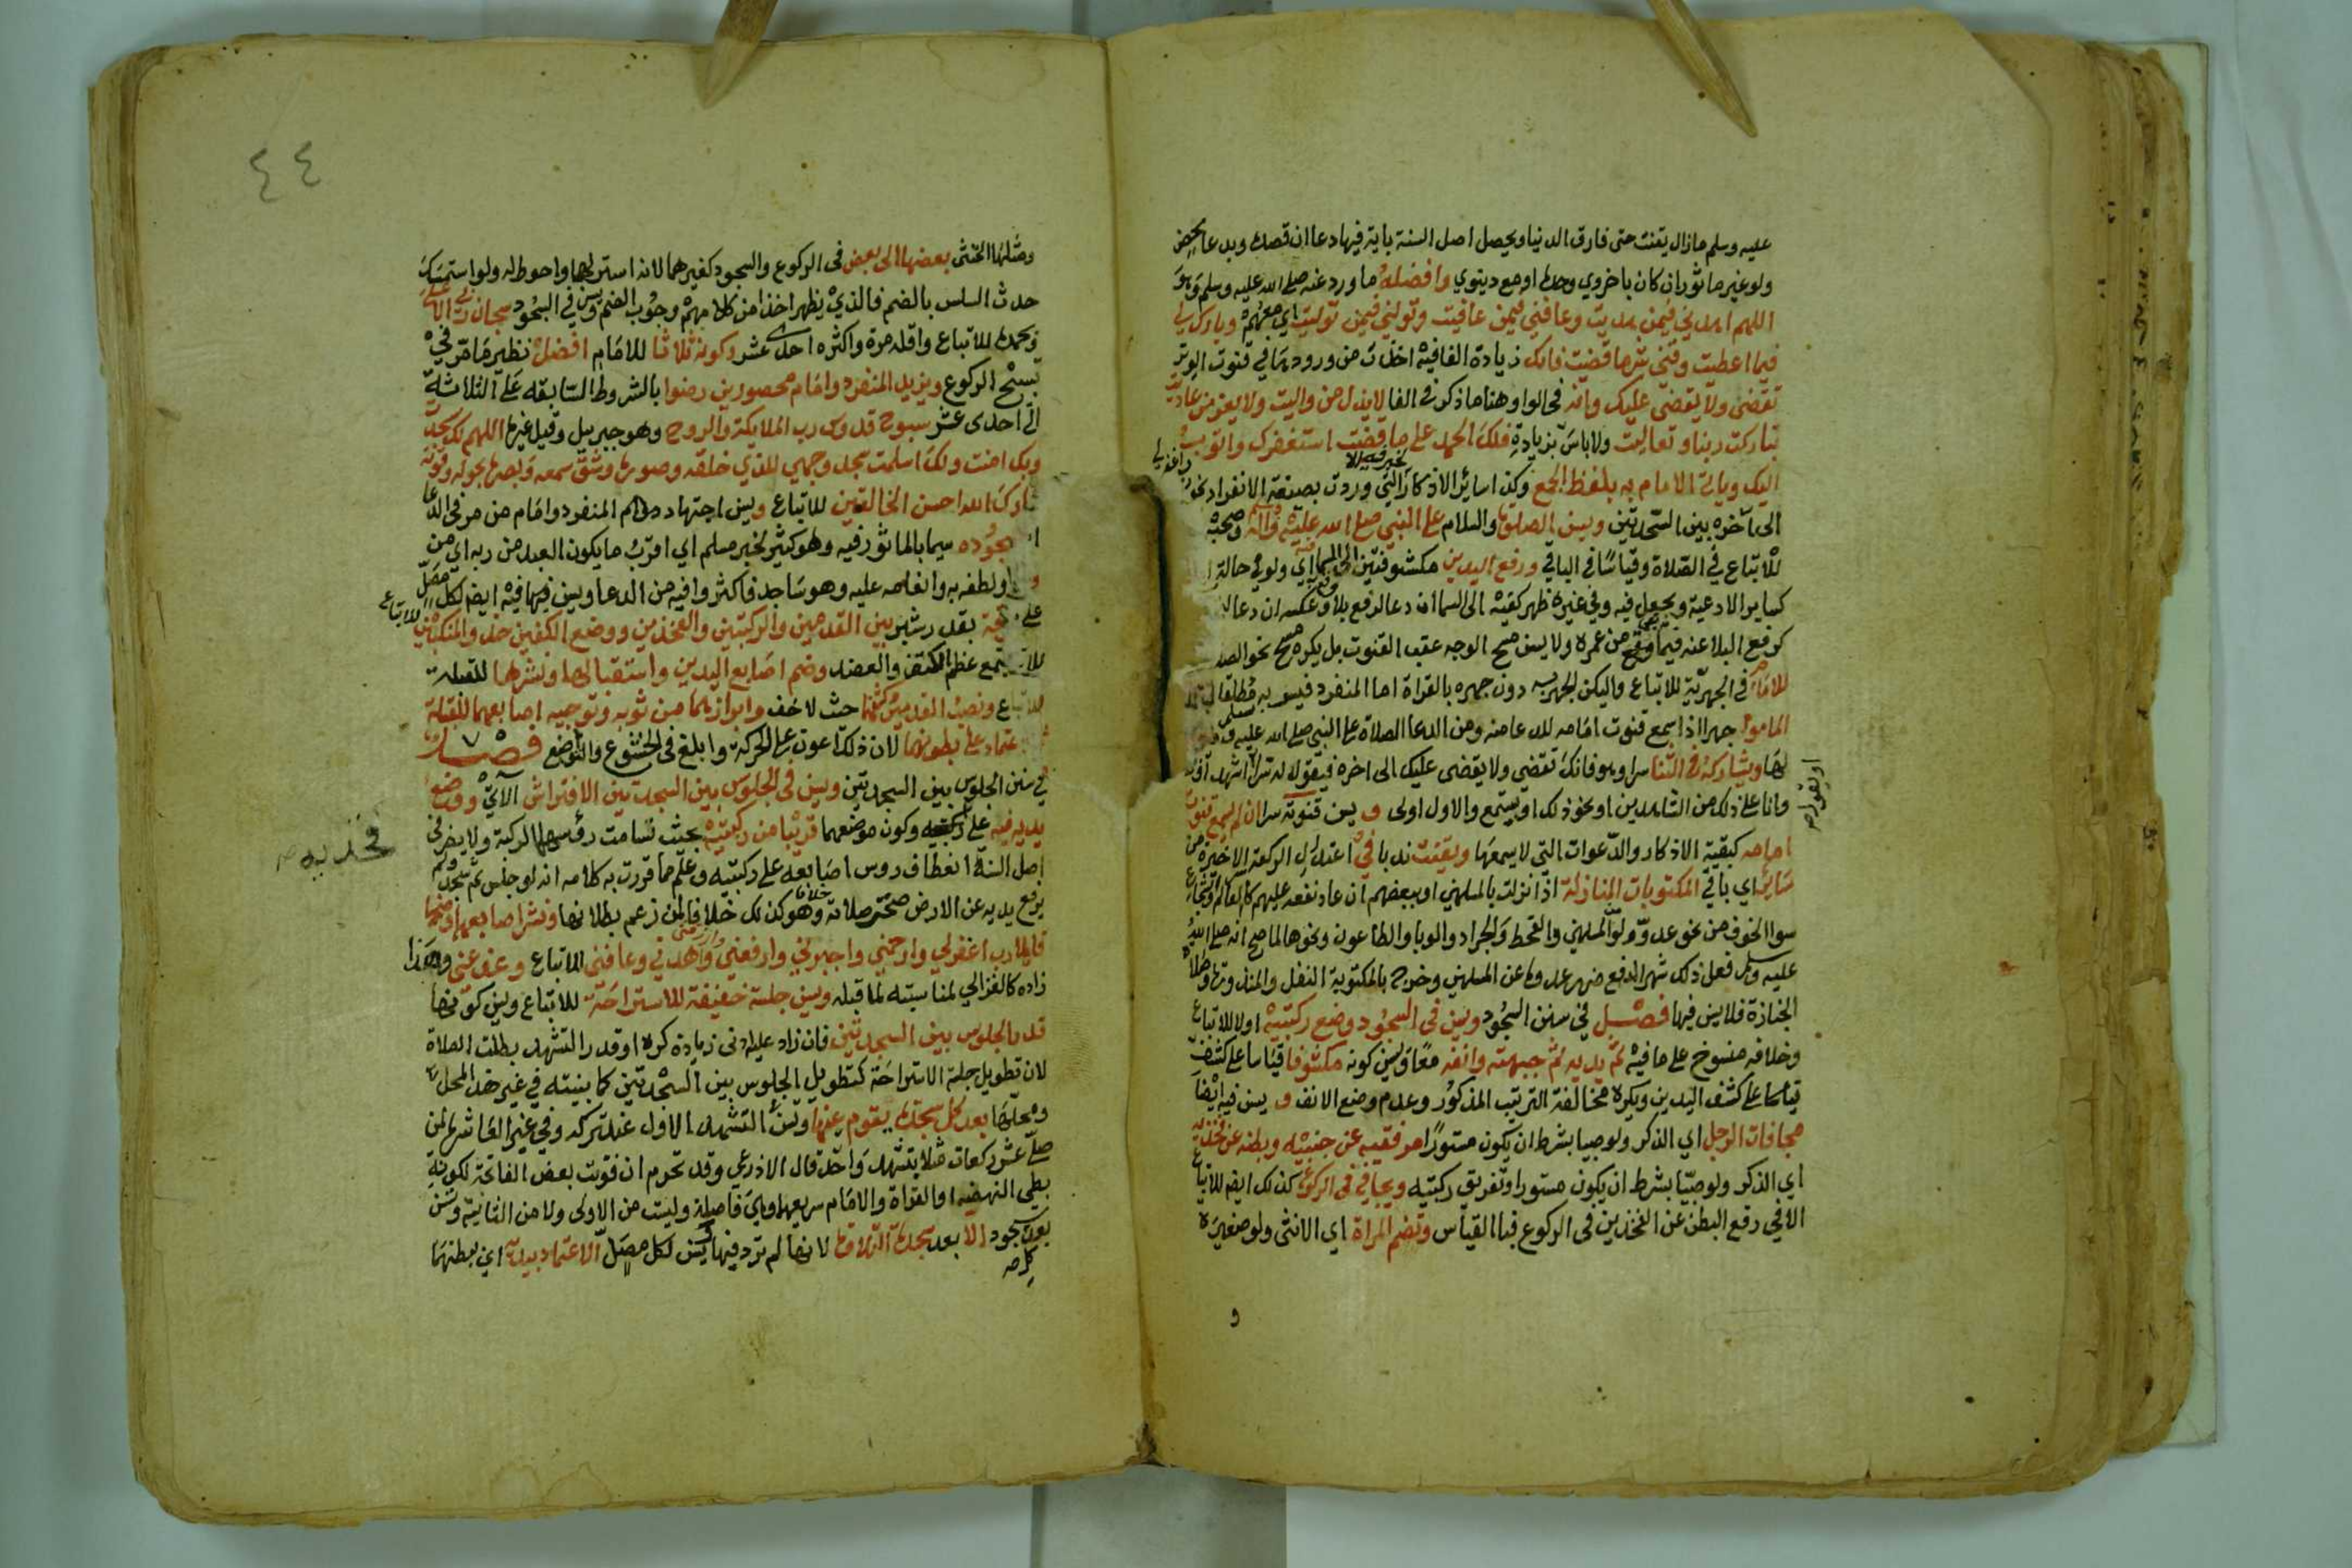 عليه وسلم ما زال يقنت حتى فارق الدنيا ويحصل اصل السنة باية فيها دعا ان قصده وبدعا محض
ولو غير ماثور ان كان باخروي وحده او مع دنيوي وافضله ما ورد عنه صلى الله عليه وسلم وهو
اللهم اهدني فيمن هديت وعافني فيمن عافيت وتولني فيمن توليت اي معهم وبارك لي
فيما اعطيت وقني شر ما قضيت فانك زيادة الفا فيه اخذت من ورودها في قنوت الوتر
تقضى ولا يقضى عليك وانه في الواو هنا ما ذكر في الفا لا يذل من واليت ولا يعز من عاديت
تباركت ربنا وتعاليت ولا باس بزيادة فلك الحمد على ما قضيت استغفرك واتوب
اليك وياتي الامام به بلفظ الجمع وكذا سائر الاذكار التي وردت بصيغة الانفراد
لخبر فيه الا
رب اغفر لي
الى آخره بين السجدتين ويسن الصلاة والسلام على النبي صلى الله عليه وسلم وآله وصحبه
للاتباع في الصلاة وقياسا في الباقي ورفع اليدين مكشوفتين الى السما اي ولو في حالة
كساير الادعية ويجعل فيه وفي غيره ظهر كفيه الى السما ان دعا لرفع بلا وقع وعكسه ان دعا
كرفع البلا عنه فيما بقي من عمره ولا يسن مسح الوجه عقب القنوت بل يكره مسح نحو الصدر
للامام في الجهرية للاتباع وليكن الجهر به دون جهره بالقراة اما المنفرد فيسر به مطلقا
الماموم جهرا اذا سمع قنوت امامه للدعا منه ومن الدعا الصلاة على النبي صلى الله عليه وسلم
لها ويشاركه في الثنا سرا وهو فانك تقضي ولا يقضى عليك الى اخره فيقوله سرا او اشهد
او يقول صح
وانا على ذلك من الشاهدين او نحو ذلك او يستمع والاول اولى ويسن قنوته سرا ان لم يسمع قنوت
امامه كبقية الاذكار والدعوات التي لا يسمعها ويقنت ندبا في اعتدال الركعة الاخيرة من
سائر اي باقي المكتوبات للنازلة اذا نزلت بالمسلمين او ببعضهم ان عاد نفعه عليهم كالعالم والشجاع
سوا الخوف من نحو عدو ولو المسلمين والقحط والجراد والوبا والطاعون ونحوها لما صح انه صلى الله
عليه وسلم فعل ذلك شهرا لدفع ضرر عدوه عن المسلمين وخرج بالمكتوبة النفل والمنذورة وصلاة
الجنازة فلا يسن فيها فصل في سنن السجود ويسن في السجود وضع ركبتيه اولا للاتباع
وخلافه منسوخ على ما فيه ثم يديه ثم جبهته وانفه معا ويسن كونه مكشوفا قياسا على كشف
قياسا على كشف اليدين ويكره مخالفة الترتيب المذكور وعدم وضع الانف ويسن فيه ايضا
مجافات الرجل اي الذكر ولو صبيا بشرط ان يكون مستورا مرفقيه عن جنبيه وبطنه عن فخذيه
اي الذكر ولو صبيا بشرط ان يكون مستورا وتفريق ركبتيه ويجافي في الركوع كذلك ايضا للاتباع
الا في رفع البطن عن الفخذين في الركوع فبالقياس وتضم المراة اي الانثى ولو صغيرة
و
٤٤
ومثلها الخنثى بعضها الى بعض في الركوع والسجود كغيرهما لانه استر لها واحوط له ولو استمسك
حدث السلس بالضم فالذي يظهر اخذا من كلامهم وجوب الضم ويسن في السجود سبحان ربي الاعلى
وبحمده للاتباع واقله مرة واكثره احدى عشر وكونه ثلاثا للامام افضل نظير ما مر في
تسبيح الركوع ويزيد المنفرد وامام محصورين رضوا بالشروط السابقة على الثلاثة
الى احدى عشر سبوح قدوس رب الملايكة والروح وهو جبريل وقيل غيره اللهم لك سجدت
وبك امنت ولك اسلمت سجد وجهي للذي خلقه وصوره وشق سمعه وبصره بحوله وقوته
تبارك الله احسن الخالقين للاتباع ويسن اجتهاد المنفرد وامام من مر في الدعا
سجوده سيما بالماثور فيه وهو كثير لخبر مسلم اي اقرب ما يكون العبد من ربه اي من
ولطفه به وانعامه عليه وهو ساجد فاكثروا فيه من الدعا ويسن فيها فيه ايضا لكل مصل
للاتباع
بقدر شبر بين القدمين والركبتين والفخذين ووضع الكفين حذو المنكبين
مجمع عظم الكتف والعضد وضم اصابع اليدين واستقبالها ونشرهما للقبلة
للاتباع ونصب القدمين وكشفهما حيث لا خف وابرازهما من ثوبه وتوجيه اصابعهما للقبلة
والاعتماد على بطونهما لان ذلك اعون على الحركة وابلغ في الخشوع والتواضع فصل
في سنن الجلوس بين السجدتين ويسن في الجلوس بين السجدتين الافتراش الآتي ووضع
يديه فيه على وكون موضعهما قريبا من ركبتيه بحيث تسامت رؤسهما الركبة ولا يضر في
فخذيه صح
اصل السنة انعطاف روس اصابعه على ركبتيه وعلم مما قررت به كلامه انه لو جلس ثم سجد ولم
يرفع يديه عن الارض صحت صلاته وهو كذلك خلافا لمن زعم بطلانها ونشر اصابعهما وضمها
قايلا رب اغفر لي وارحمني واجبرني وارفعني وارزقني واهدني وعافني للاتباع وعف عني وهذا
زاده كالغزالي لمناسبته لما قبله ويسن جلسة خفيفة للاستراحة للاتباع ويسن كونها
قدر الجلوس بين السجدتين فان زاد عليه ادنى زيادة كره او قدر التشهد بطلت الصلاة
لان تطويل جلسة الاستراحة كتطويل الجلوس بين السجدتين كما بينته في غير هذا المحل
ومحلها بعد كل سجدة يقوم عنها ولسن التشهد الاول عند تركه وفي غير العاشرة لمن
صلى عشر ركعات مثلا بتشهد واحد قال الاذرعي وقد تحرم ان فوتت بعض الفاتحة لكونه
بطي النهضة او القراة والامام سريعها وهي فاصلة وليست من الاولى ولا من الثانية وتسن
بعد كل سجود الا بعد سجدة التلاوة لانها لم ترد فيها ويسن لكل مصل الاعتماد بيديه اي ببطنهما